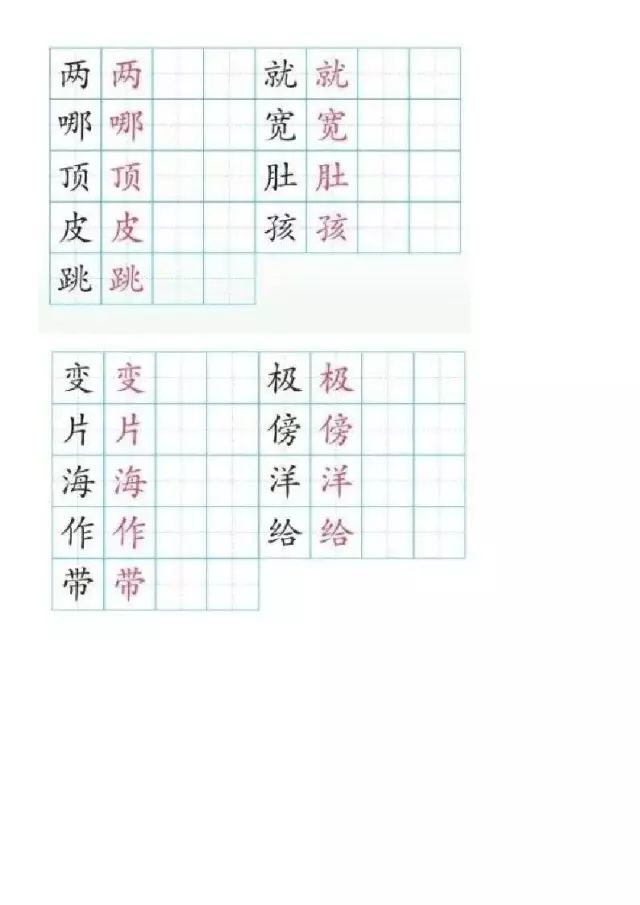 两 两 就 就
哪 哪 宽 宽
顶 顶 肚 肚
皮 皮 孩 孩
跳 跳
变 变 极 极
片 片 傍 傍
海 海 洋 洋
作 作 给 给
带 带